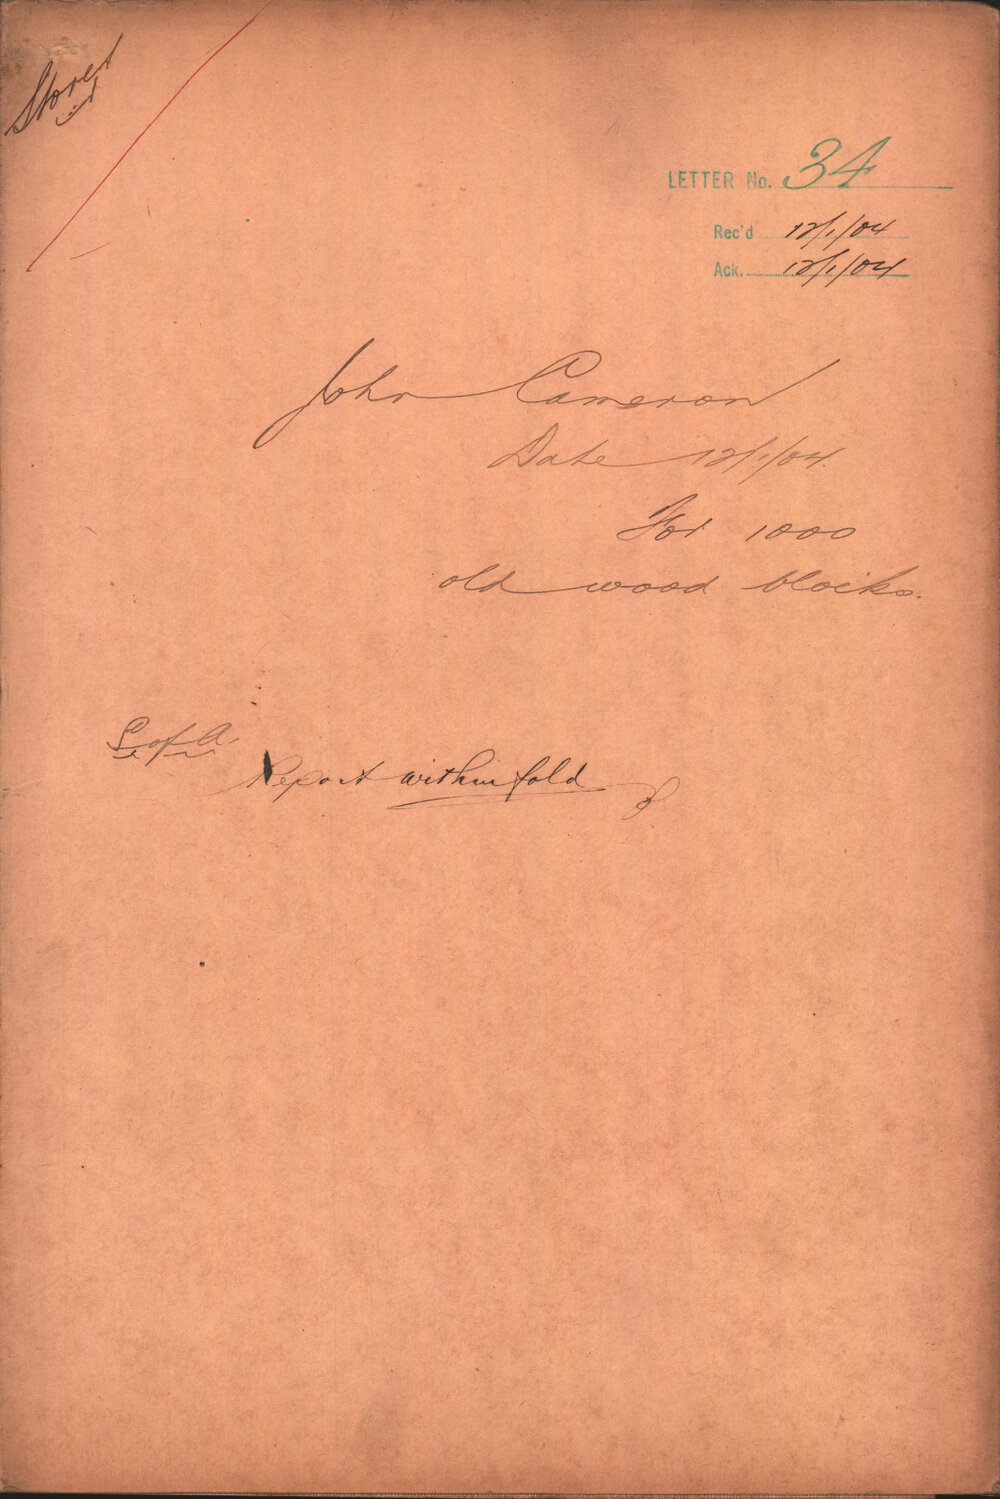 Stores
LETTER No. 34
Rec'd 12/1/04
Ack. 12/1/04
John Cameron
Date 12/1/04.
For 1000
old wood blocks.
P of A.
Report within fold